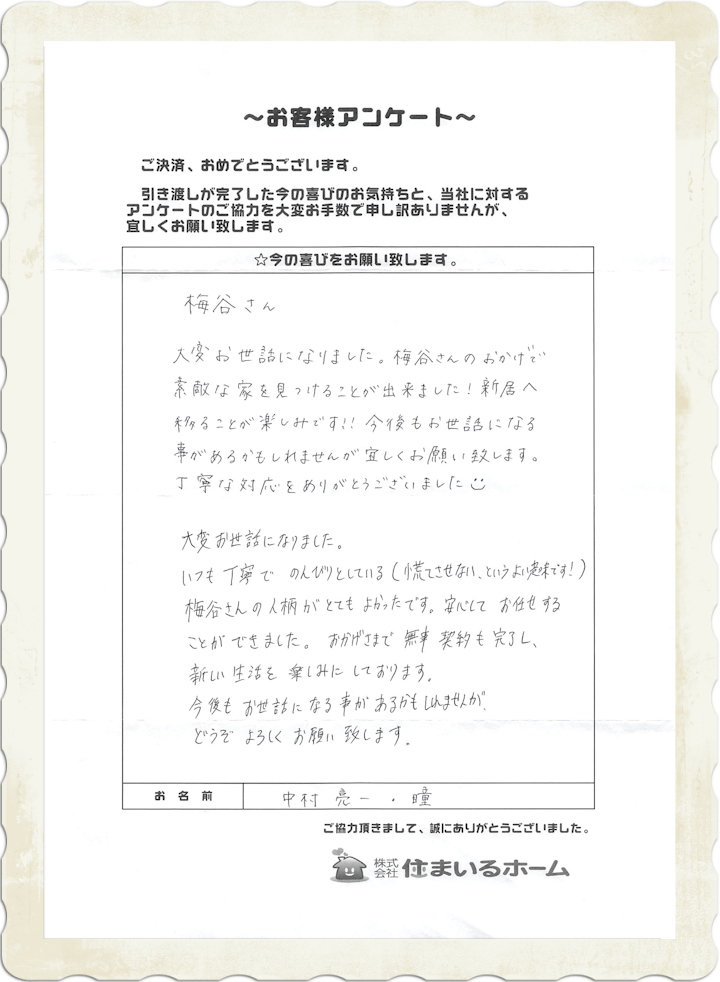 ～お客様アンケート～
ご決済、おめでとうございます。
引き渡しが完了した今の喜びのお気持ちと、当社に対する
アンケートのご協力を大変お手数で申し訳ありませんが、
宜しくお願い致します。
☆今の喜びをお願い致します。
梅谷さん
大変お世話になりました。梅谷さんのおかげで
素敵な家を見つけることが出来ました！新居へ
移ることが楽しみです！！今後もお世話になる
事があるかもしれませんが宜しくお願い致します。
丁寧な対応をありがとうございました
大変お世話になりました。
いつも丁寧で のんびりとしている(慌てさせない、というよい意味です！)
梅谷さんの人柄がとてもよかったです。安心して お任せする
ことができました。おかげさまで 無事 契約も完了し、
新しい生活を楽しみにしております。
今後もお世話になる事があるかもしれませんが、
どうぞよろしくお願い致します。
お名前 中村 亮一・瞳
ご協力頂きまして、誠にありがとうございました。
株式会社 住まいるホーム